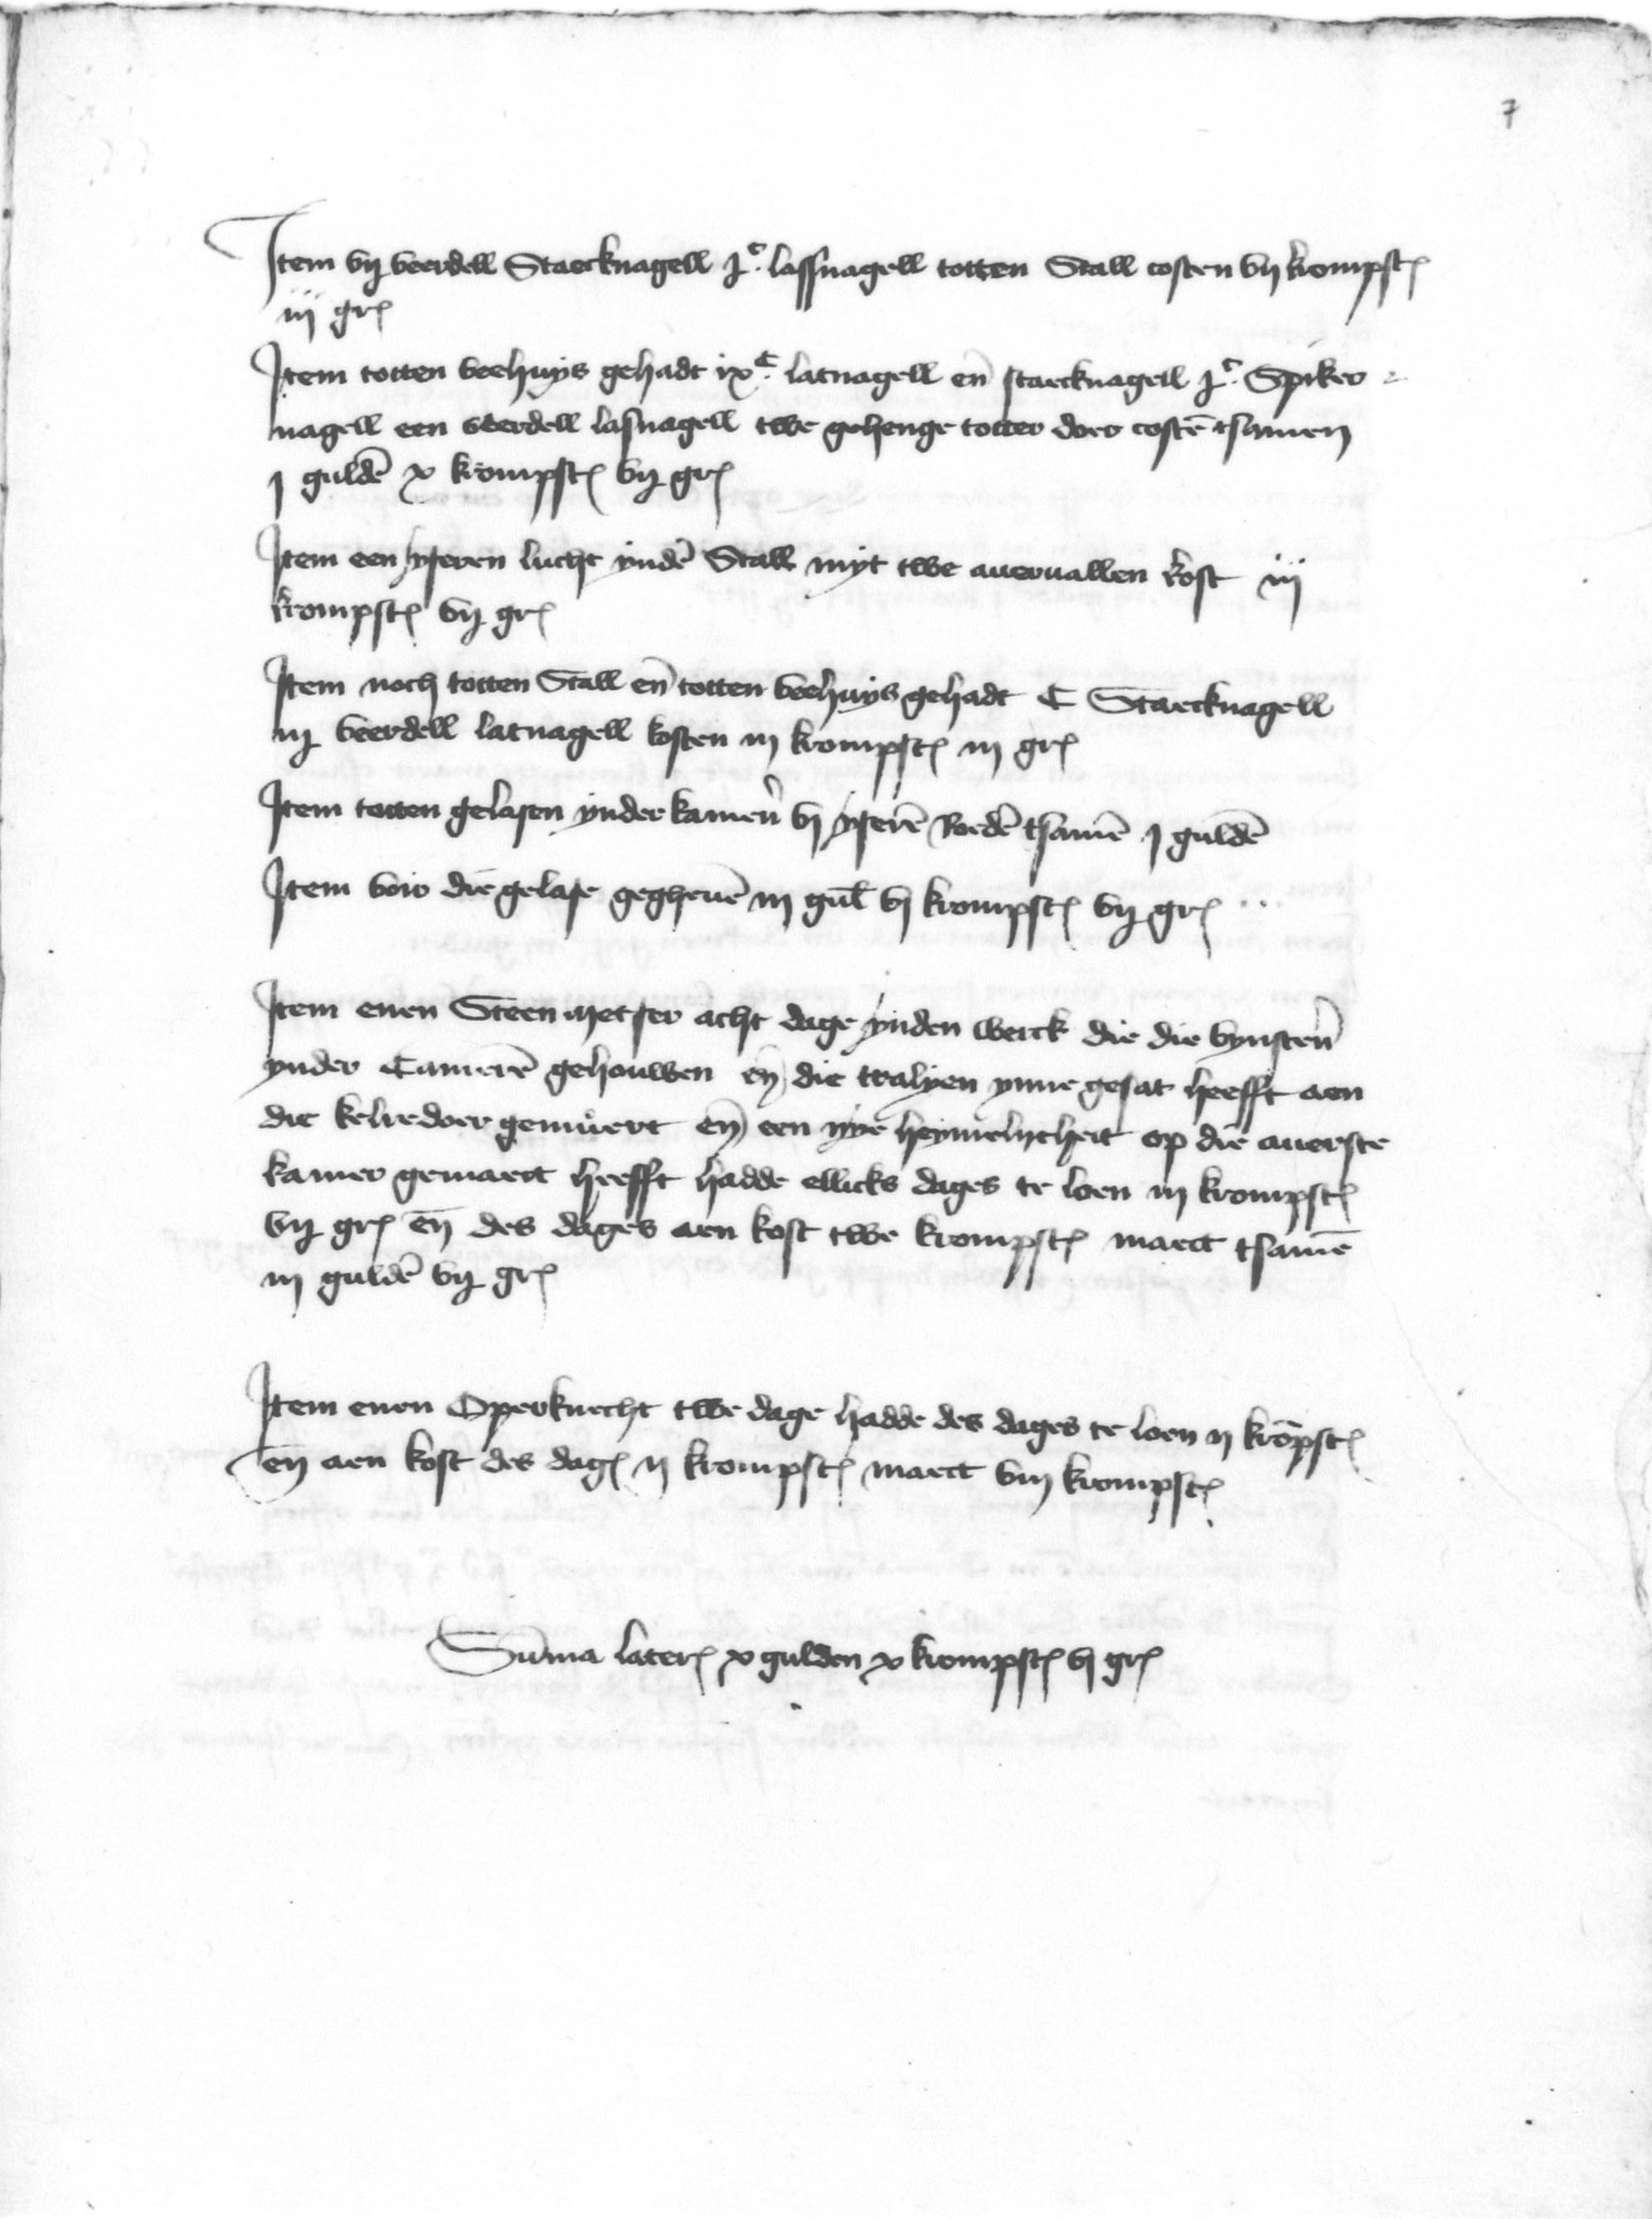 7
Item vij veerdell Staecknagell jc. lassnagell totten Stall costen vij krompst
iij gr
Item totten veehuys gehadt ixc. latnagell en̄ staecknagell jc. Spiker
nagell een veerdell lasnagell twe gehenge totter doer costē tsamen
j guldē x krompst vij gr
Item een yseren lucht yndē Stall myt twe aueruallen kost iij
krompst vij gr
Item noch totten Stall en̄ totten veehuys gehadt C Staecknagell
iij veerdell latnagell kosten iij krompst iij gr
Item totten gelasen ynder kamern̄ vj yserē Roedē tsamē j guldē
Item voir die gelase gegheuē iij gul̄ vj krompst vij gr
Item enen Steen metser acht dage ynden werck die die vynstern̄
ynder Camerē gehouwen en̄ die tralyen ynne gesat heefft aen
die kelredoer gemuert en̄ een nye heymelycheit op die auerste
kamer gemaect heefft hadde ellicks dages te loen iij krompst
vij gr en̄ des dages aen kost twe krompst maect tsamē
iij guldē vij gr
Item enen Operknecht twe dage hadde des dages te loen ij krōpst
en̄ aen kost des dag ij krompst maect viij krompst
Sūma later x gulden x krompst vj gr